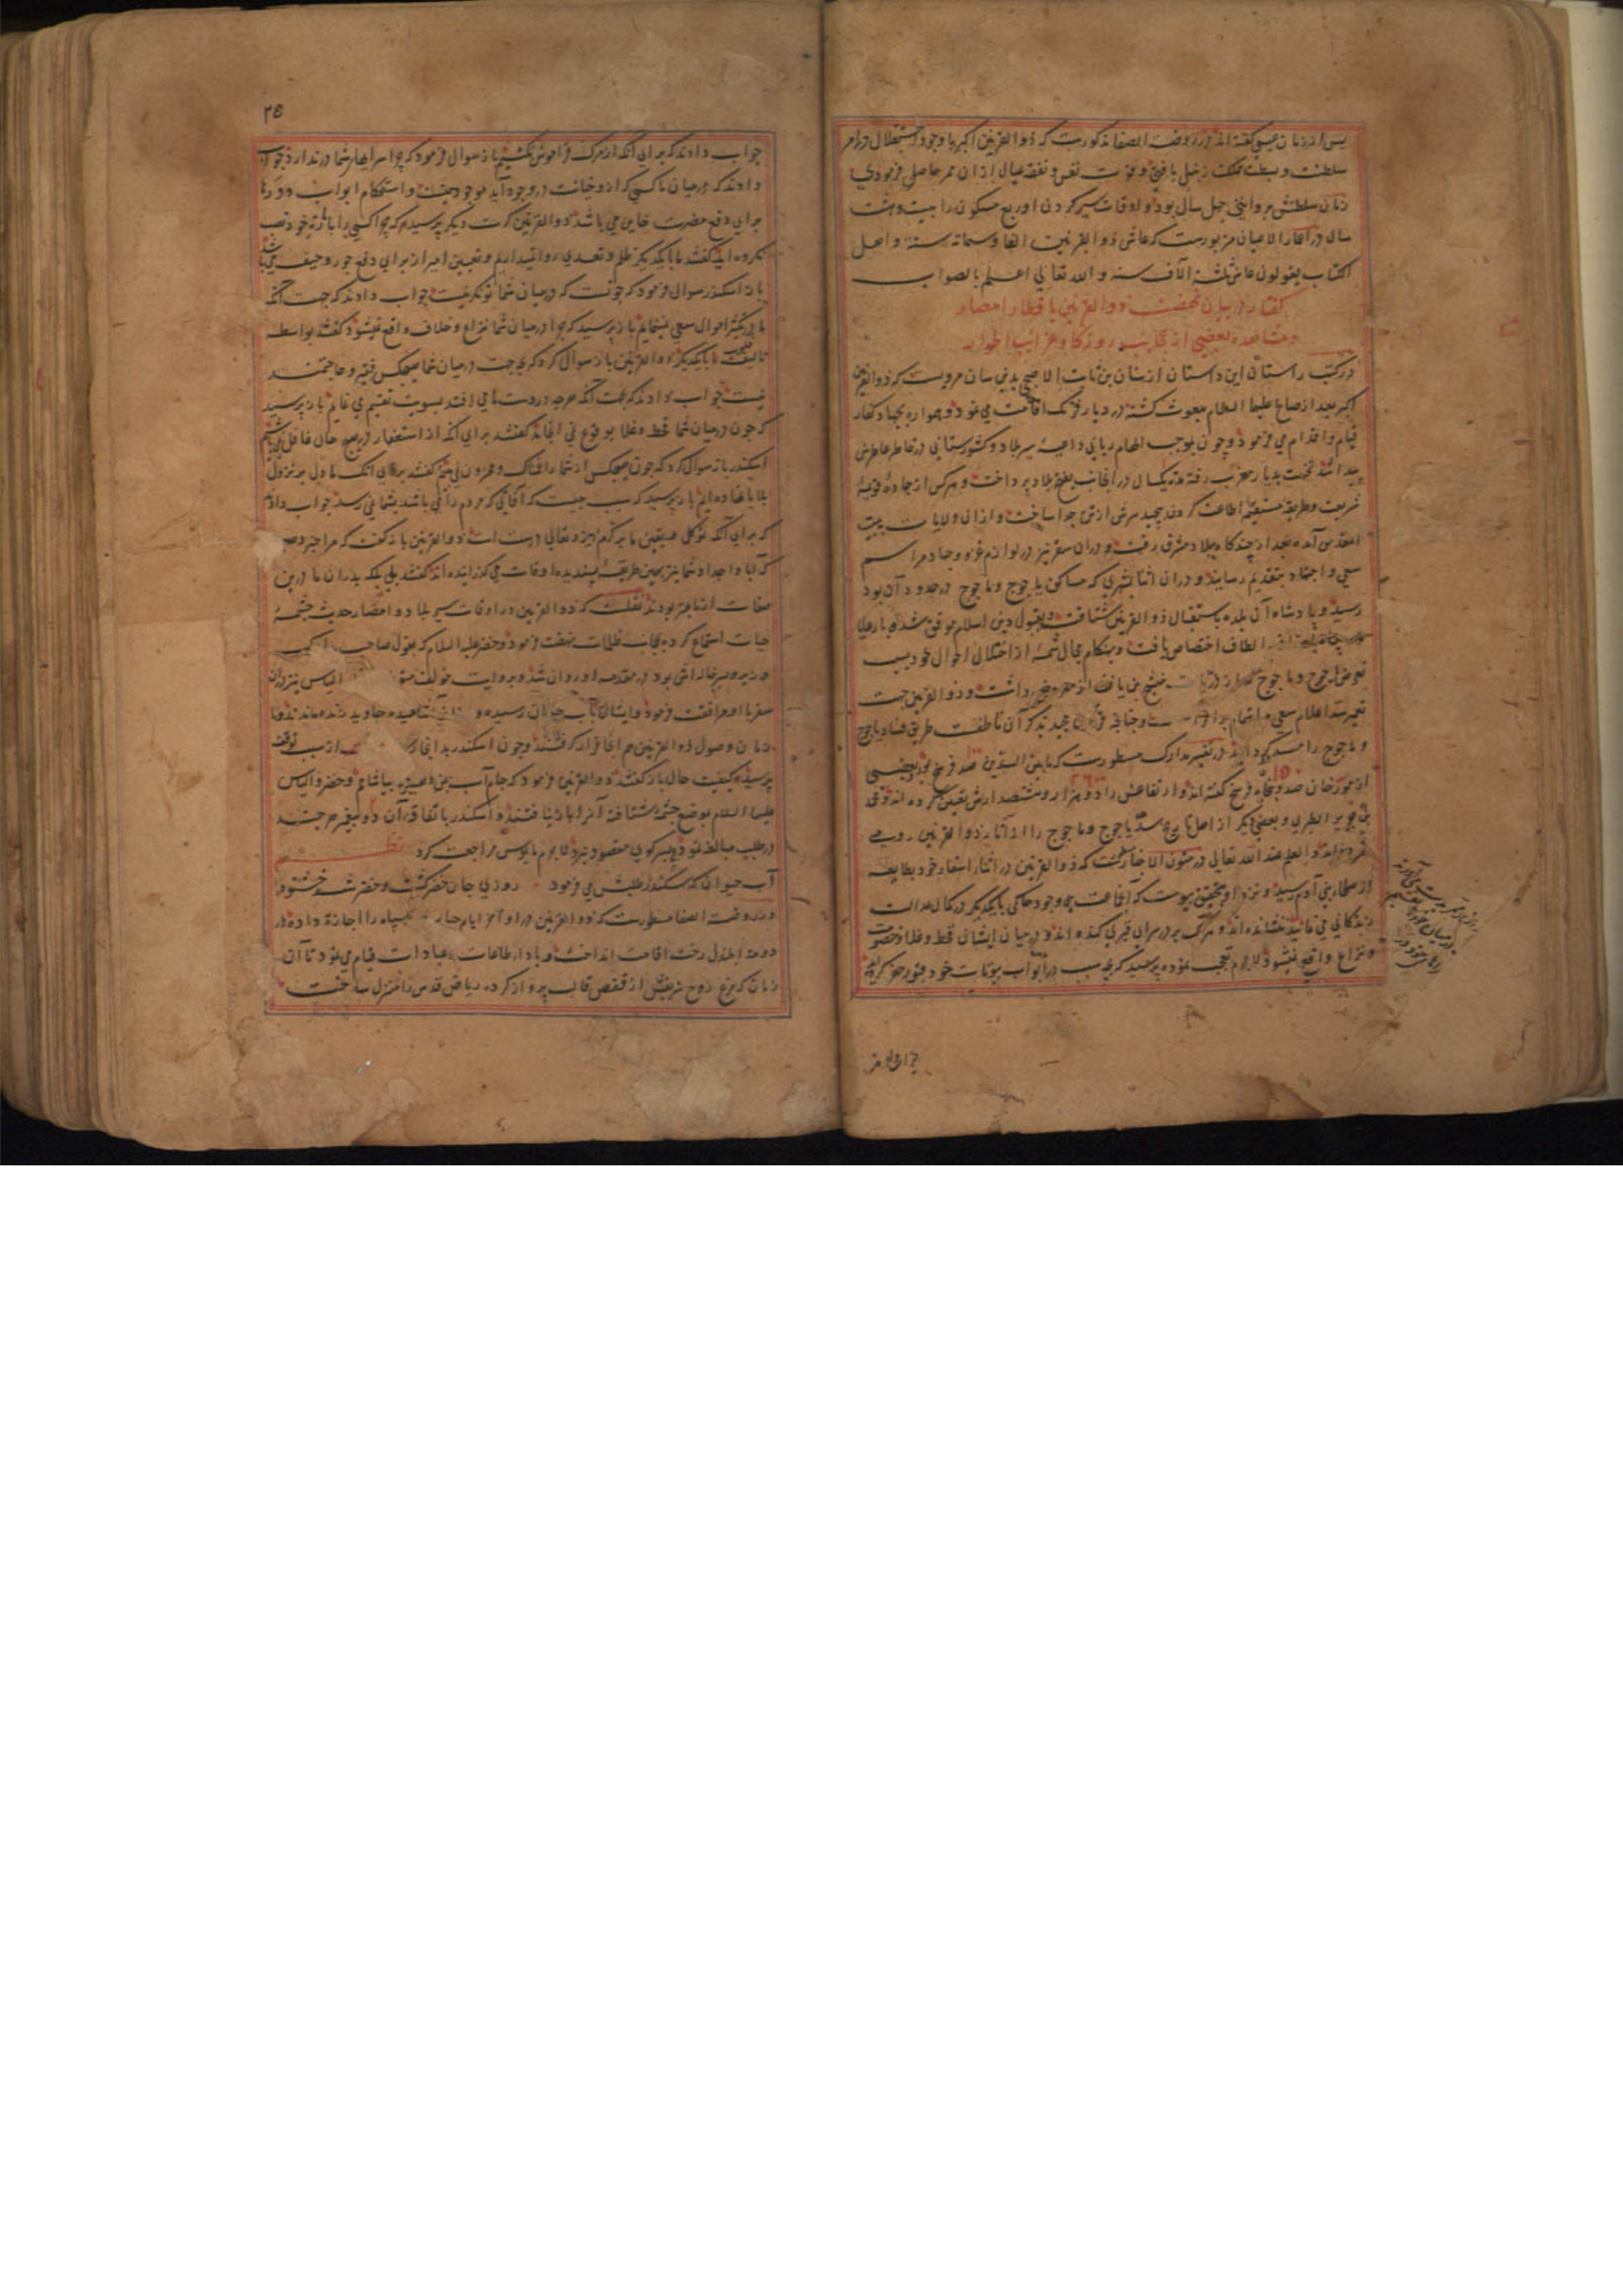 پس از زمان عیسی گفته‌اند و در روضت الصفا مذکورست که ذو القرنین اکبر با وجود استقلال در امر
سلطنت و بسطت مملکت زنبیل بافتی و قوت نفس و نفقه عیال از آن ممر حاصل فرمودی
زمان سلطنتش بروایتی چهل سال بود و اوقات سیر کردن او ربع مسکون را بیست و هشت
سال در اعمار الاعیان مزبورست که عاش ذو القرنین الفا و سماته سنة و اهل
الکتاب یقولون عاش ثلثة آلاف سنه و الله تعالی اعلم بالصواب
گفتار در بیان نهضت ذوالقرنین باقطار امصار
و مشاهده بعضی از عجایب روزکار و غرایب اطوار
در کتب راستان این داستان از بیان بدین سان مرویست که ذوالقرنین
اکبر بعد از صالح علیهما السلام مبعوث کشته در دیار فرنک اقامت می نمود و همواره بجهاد کفار
قیام و اقدام می فرمود و چون بموجب الهام ربانی داعیهٔ سیر بلاد و کشورستانی در خاطر عاطرش
پیدا شد نخست بدیار مغرب رفته مدة یکسال در آنجانب بفتح بلاد پرداخت و هر کس از جادهٔ قویمهٔ
شریعت و طریقهٔ مستقیمهٔ اطاعت کردن پیچید سرش از تن جدا ساخت و از آن ولایات ببیت
المقدس آمده بعد از چندکاه ببلاد مشرق رفت و در آن سفر نیز در لوازم غزو و جهاد مراسم
سعی و اجتهاد بتقدیم رسانید و در آن اثنا بشهری که مساکن یاجوج و ماجوج در حدود آن بود
رسید و پادشاه آن بلده باستقبال ذو القرنین شتافت و بقبول دین اسلام موفق شده
الطاف اختصاص یافت و هنکام مجال شمهٔ از اختلال احوال خود بسبب
تعرض یاجوج و ماجوج که از ذریات منشج بن یافث اند معروض داشت و ذو القرنین جهت
تعمیر سد اعلام سعی و اهتمام و چنانچه قرآن مجید بذکر آن ناطقست طریق فساد یاجوج
و ماجوج را مسدود کردانید در تفسیر مدارک مسطورست که مابین السدین صد فرسخ بود و بعضی
از مورخان صد و پنجاه فرسخ کفته اند و ارتفاعش را دو هزار و هشتصد ارش تعیین کرده اند و محمد
بن جریر الطبری و بعضی دیکر از اهل تاریخ سد یاجوج و ماجوج را از آثار ذو القرنین رومی
شمرده اند و العلم عند الله تعالی در متون الاخبار که ذو القرنین در اثنای اسفار خود بطایفه
از صلحای بنی آدم رسید و نزد او بتحقیق پیوست که آنجماعت بی وجود حاکمی با یکدیکر در کمال عدالت
زندکانی می نمایند و بر در سرای قبری کنده اند و در میان ایشان قحط و غلا و خصومت
و نزاع واقع نمیشود لاجرم تعجب نموده پرسید که بچه سبب در ابواب بیوتات خود قبور حفر کرده اید
جواب دادند
۲۵
جواب دادند که برای آنکه از مرک فراموش نکنیم باز سوال فرمود که چرا سراهای شما در ندارد جواب
دادند که در میان ما کسی که از و خیانت در وجود آید موجود نیست و استحکام ابواب دورها
برای دفع مضرت خاین می باشد ذوالقرنین کرت دیکر پرسید که چرا کسی را بامارت خود نصب
نکرده اید کفتند ما با یکدیکر ظلم و تعدی روا نمیداریم و تعیین امیر از برای دفع جور و حیف می باشد
باز اسکندر سوال فرمود که چونست که در میان شما تونکر نیست جواب دادند که جهت آنکه
ما در تکثیر اموال سعی نمینمایم باز پرسید که چرا در میان شما نزاع و خلاف واقع نمیشود کفتند بواسطه
تألیف قلوب ما با یکدیکر ذو القرنین باز سوال کرد که بچه جهت در میان شما هیچکس فقیر و حاجتمند
نیست جواب دادند که بجهت آنکه هرچه در دست ما می افتد بسویت تقسیم می نمایم باز پرسید
که چون در میان شما قحط و غلا بوقوع نمی انجامد کفتند برای آنکه از استغفار در هیچ حال غافل نمی باشیم
اسکندر باز سوال کرد که چون هیچکس از شما را غمناک و محزون نمی بینم کفتند برای آنکه ما دل بر نزول
بلایا نهاده ایم باز پرسید که سبب چیست که آفاتی که مردم را می باشد بشما نمی رسد جواب دادند
که برای آنکه توکل و یقین ما بر کرم ایزد تعالی درست است ذوالقرنین باز کفت که مرا خبر دهید
که آبا و اجداد شما نیز بهمین طریقهٔ پسندیده اوقات می گذرانیده اند کفتند بلی بلکه پدران ما درین
صفات از ما بهتر بودند نقلست که ذو القرنین در اوقات سیر بلاد و امصار حدیث چشمهٔ
حیات استماع کرده بجانب ظلمات نهضت فرمود و خضر علیه السلام که بقول صاحب
وزیر و پسر خاله اش بود در مقدمه او روان شد و بروایت الیاس نیز دران
سفر با او مرافقت فرمود و ایشان بآب حیوان رسیده و جاوید زنده ماندند و تا
زمان وصول ذو القرنین هم آنجا قرار کرفتند و چون اسکندر بدانجا از سبب توقف
پرسید کیفیت حال باز کفتند ذو القرنین فرمود که جام آب بمن دهید بیاشامم و خضر و الیاس
علیهما السلام بموضع چشمه شتافته آنرا باز نیافتند و اسکندر باتفاق آن دو پیغمبر هرچند
در طلب مبالغه نمود بسر کوی مقصود نبرد لاجرم مایوس مراجعت کرد نظم
آب حیوان که سکندر طلبش می فرمود روزی جان خضر کشت و خضر شد خشنود
و در روضت الصفا مسطورست که ذو القرنین در اواخر ایام حیات سپاه را اجازة داده در
دومة الجندل رخت اقامت انداخت و باداء طاعات و عبادات قیام می نمود تا آن
زمان که مرغ روح شریفش از قفص قالب پرواز کرده ریاض قدس را منزل ساخت